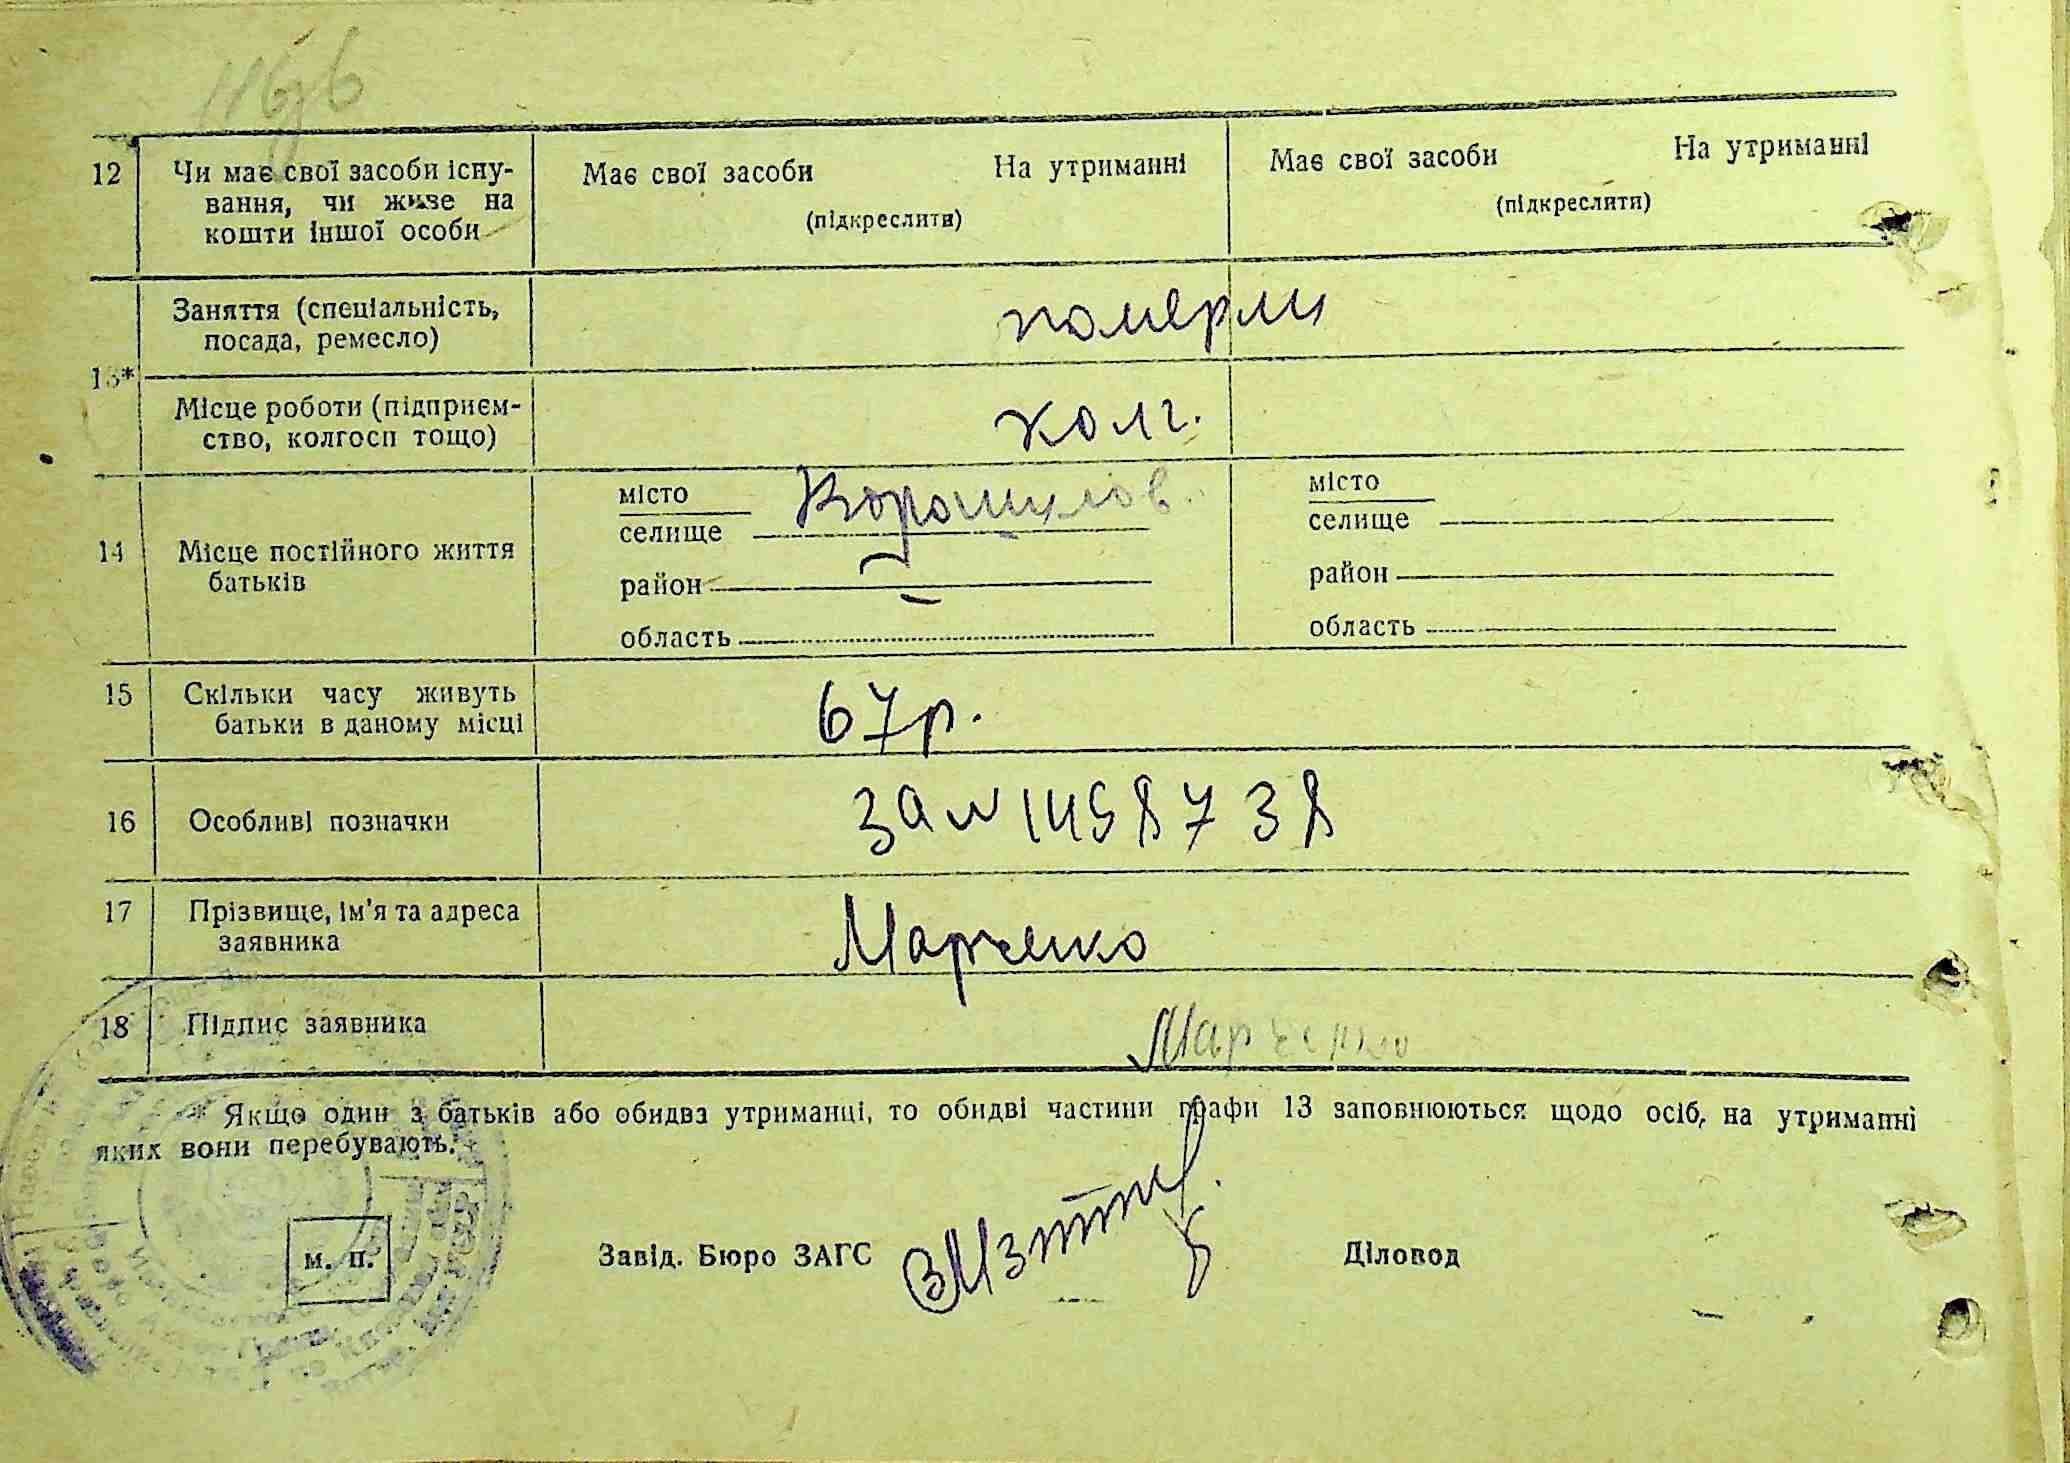 12 Чи має свої засоби існу- Має свої засоби На утриманні Має свої засоби На утриманні
вання, чи живе на (підкреслити) (підкреслити)
кошти іншої особи
Заняття (спеціальність, померли
посада, ремесло)
13*
Місце роботи (підприєм- колг.
ство, колгосп тощо)
14 Місце постійного життя
батьків
місто
селище
район
область
місто
селище
район
область
15 Скільки часу живуть 67р.
батьки в даному місці
16 Особливі позначки 1458738
17 Прізвище, ім'я та адреса Марченко
заявника
18 Підпис заявника Марченко
* Якщо один з батьків або обидва утриманці, то обидві частини графи 13 заповнюються щодо осіб, на утриманні
яких вони перебувають.
м. п. Завід. Бюро ЗАГС Діловод